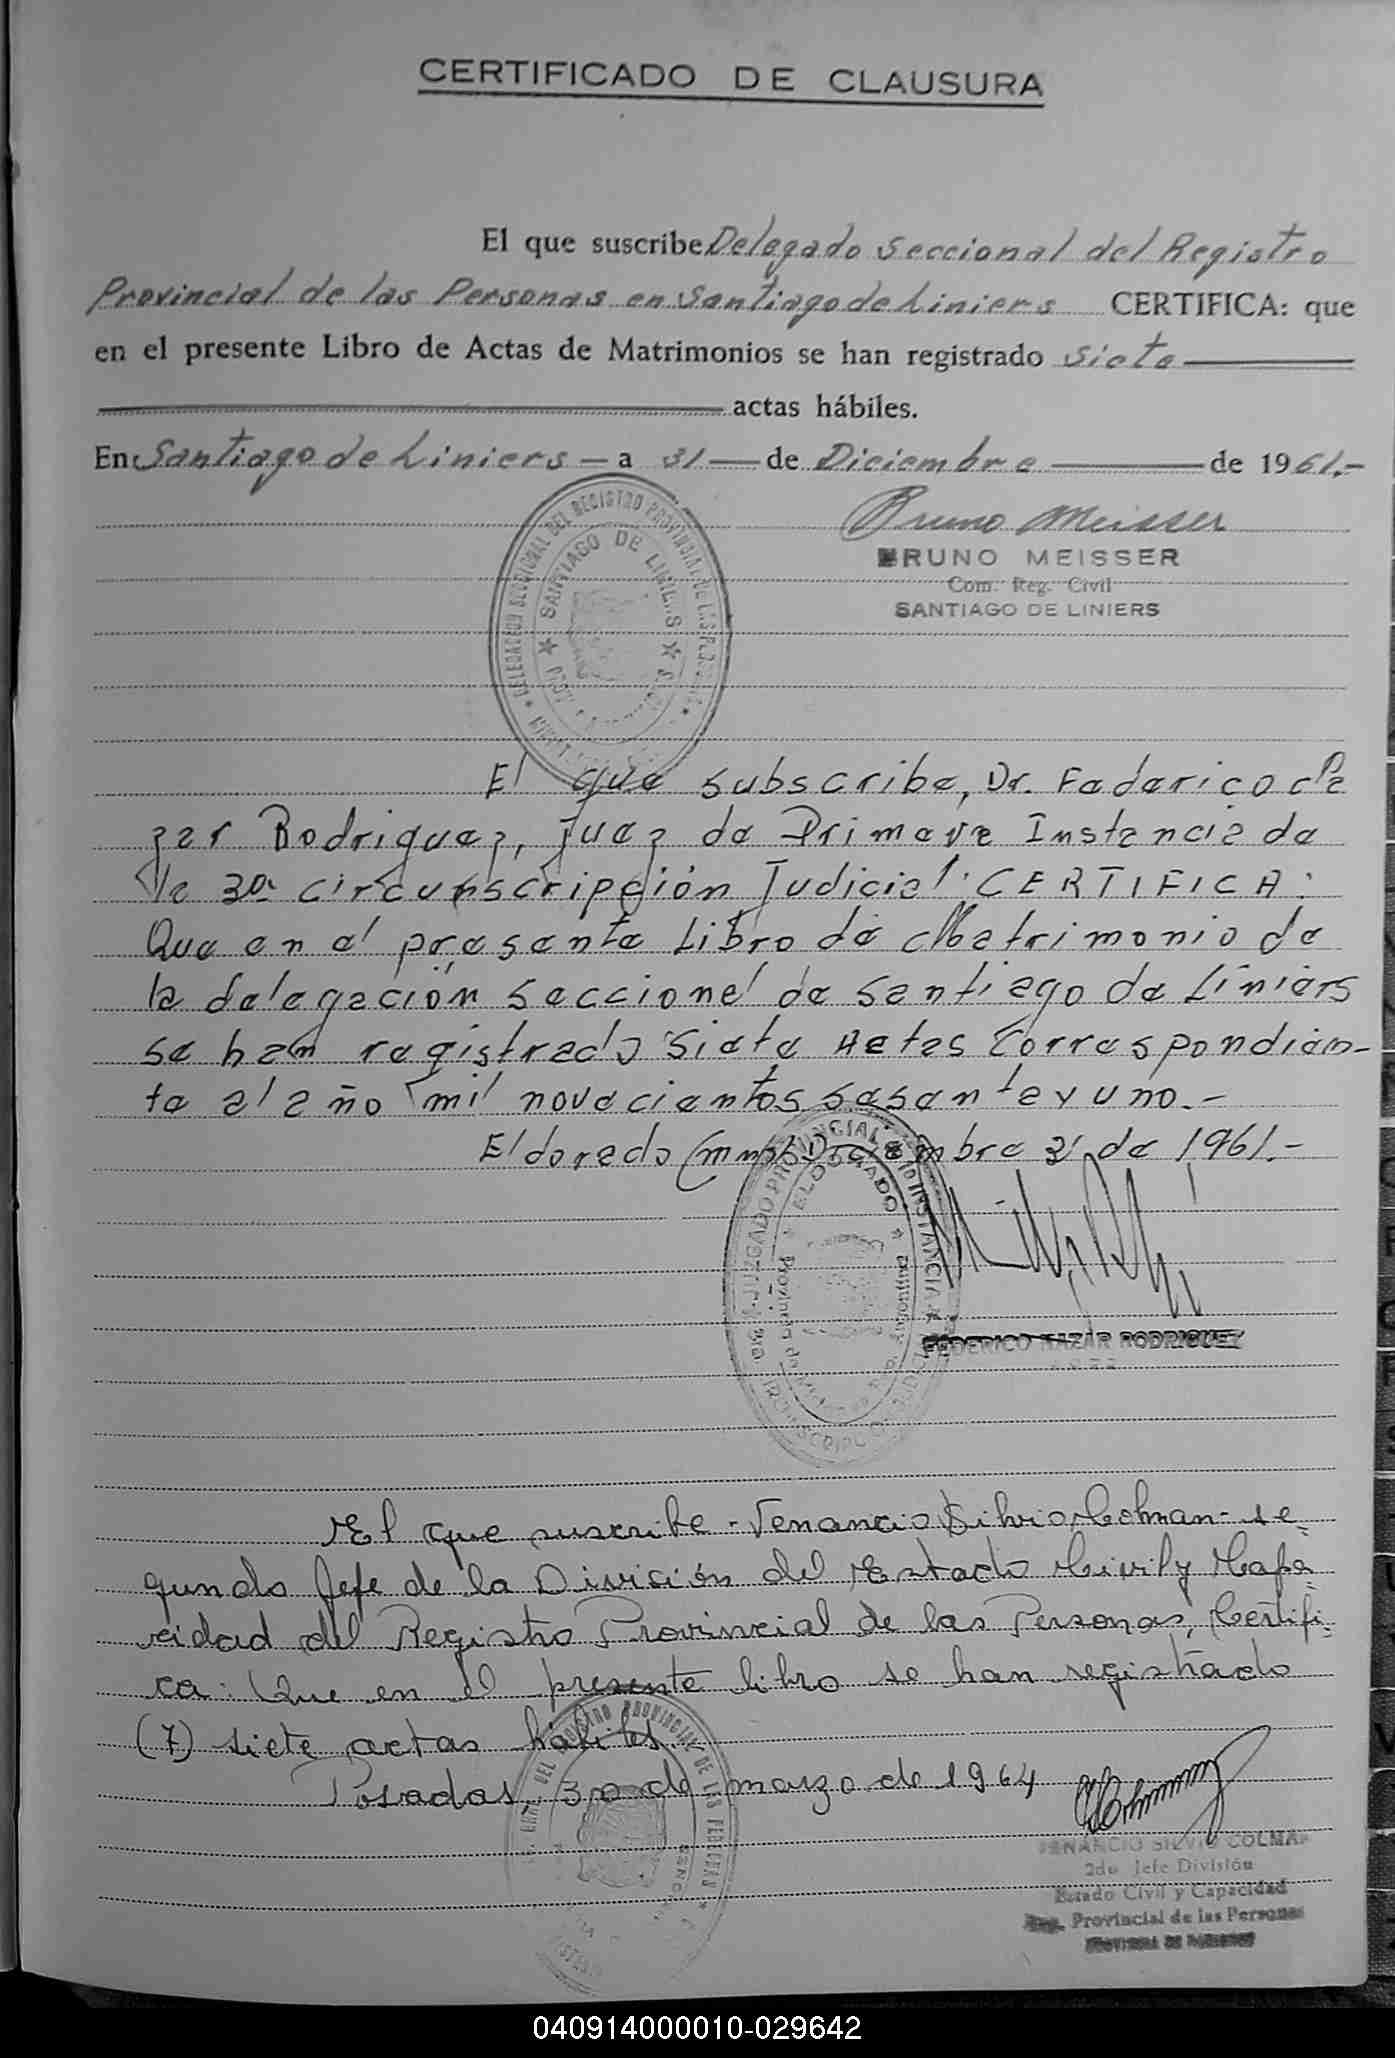 CERTIFICADO DE CLAUSURA
El que suscribe Delegado Seccional del Registro
Provincial de las Personas en Santiago de Liniers CERTIFICA: que
en el presente Libro de Actas de Matrimonios se han registrado Siete
actas hábiles.
En Santiago de Liniers - a 31 - de Diciembre de 1961.-
Bruno Meisser
BRUNO MEISSER
Com. Reg. Civil
SANTIAGO DE LINIERS
DELEGACIÓN SECCIONAL DEL REGISTRO PROVINCIAL DE LAS PERSONAS
SANTIAGO DE LINIERS
El que subscribe, Dr. Federico Na
zar Rodriguez, Juez de Primera Instancia de
la 3a. circunscripción Judicial. CERTIFICA:
Que en el presente Libro de Matrimonio de
la delegación Seccional de Santiago de Liniers
se han registrado Siete Actas Correspondien-
te al año mil novecientos sesenta y uno.-
Eldorado (mns) Diciembre 31 de 1961.-
JUZGADO PROVINCIAL DE 1a INSTANCIA
ELDORADO
Provincia de Misiones Rep. Argentina
FEDERICO NAZAR RODRIGUEZ
JUEZ
El que suscribe - Venancio Silvio Colman - se-
gundo Jefe de la División del Estado Civil y Capa-
cidad del Registro Provincial de las Personas, Certifi-
ca: Que en el presente libro se han registrado
(7) siete actas hábiles.
Posadas, 30 de marzo de 1964
DEL REGISTRO PROVINCIAL DE LAS PERSONAS
VENANCIO SILVIO COLMAN
2do Jefe División
Estado Civil y Capacidad
Reg. Provincial de las Personas
PROVINCIA DE MISIONES
040914000010-029642